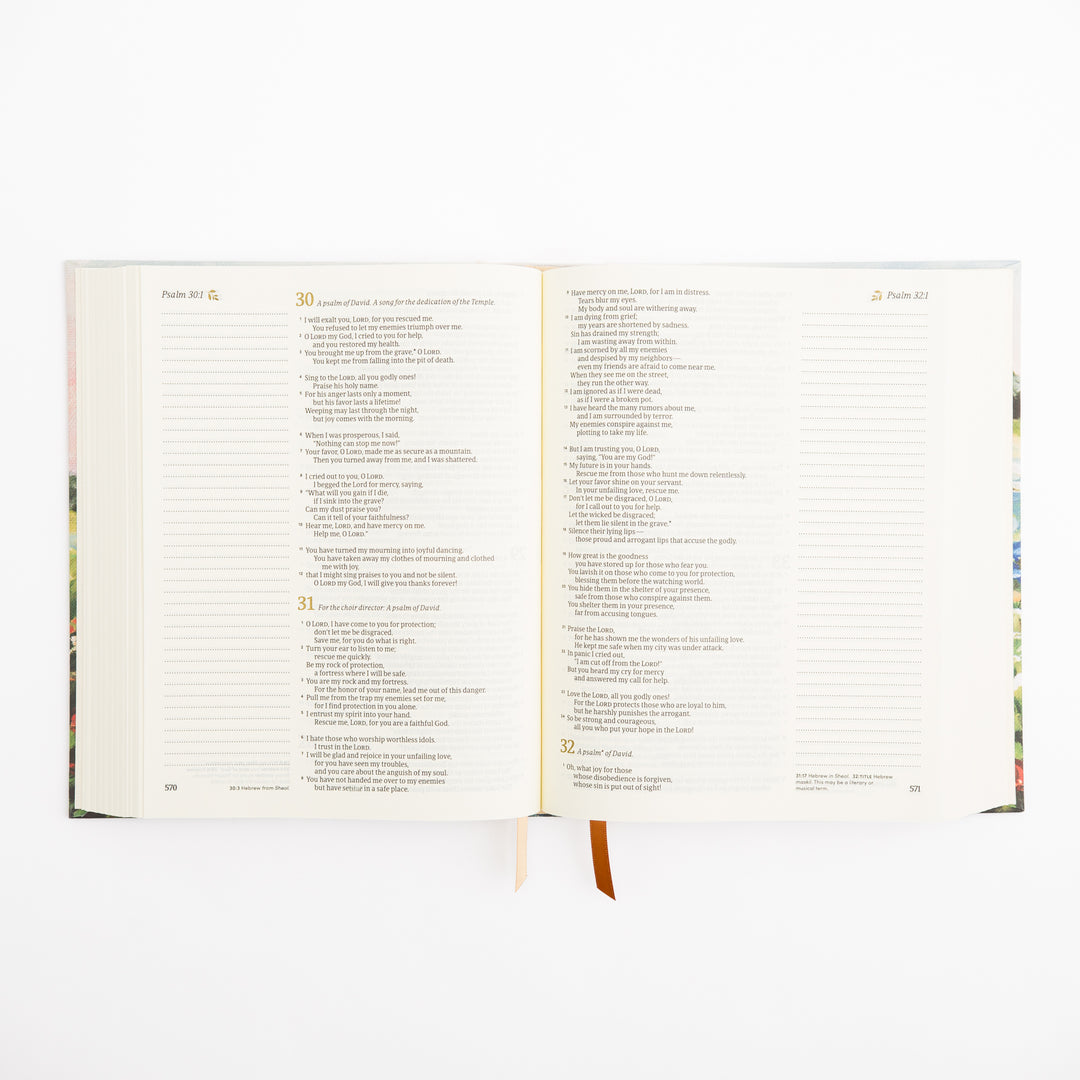 Psalm 30:1
30 A psalm of David. A song for the dedication of the Temple.
1 I will exalt you, LORD, for you rescued me.
You refused to let my enemies triumph over me.
2 O LORD my God, I cried to you for help,
and you restored my health.
3 You brought me up from the grave,* O LORD.
You kept me from falling into the pit of death.
4 Sing to the LORD, all you godly ones!
Praise his holy name.
5 For his anger lasts only a moment,
but his favor lasts a lifetime!
Weeping may last through the night,
but joy comes with the morning.
6 When I was prosperous, I said,
"Nothing can stop me now!"
7 Your favor, O LORD, made me as secure as a mountain.
Then you turned away from me, and I was shattered.
8 I cried out to you, O LORD.
I begged the Lord for mercy, saying,
9 "What will you gain if I die,
if I sink into the grave?
Can my dust praise you?
Can it tell of your faithfulness?
10 Hear me, LORD, and have mercy on me.
Help me, O LORD."
11 You have turned my mourning into joyful dancing.
You have taken away my clothes of mourning and clothed
me with joy,
12 that I might sing praises to you and not be silent.
O LORD my God, I will give you thanks forever!
31 For the choir director: A psalm of David.
1 O LORD, I have come to you for protection;
don't let me be disgraced.
Save me, for you do what is right.
2 Turn your ear to listen to me;
rescue me quickly.
Be my rock of protection,
a fortress where I will be safe.
3 You are my rock and my fortress.
For the honor of your name, lead me out of this danger.
4 Pull me from the trap my enemies set for me,
for I find protection in you alone.
5 I entrust my spirit into your hand.
Rescue me, LORD, for you are a faithful God.
6 I hate those who worship worthless idols.
I trust in the LORD.
7 I will be glad and rejoice in your unfailing love,
for you have seen my troubles,
and you care about the anguish of my soul.
8 You have not handed me over to my enemies
but have set me in a safe place.
570
30:3 Hebrew from Sheol.
Psalm 32:1
9 Have mercy on me, LORD, for I am in distress.
Tears blur my eyes.
My body and soul are withering away.
10 I am dying from grief;
my years are shortened by sadness.
Sin has drained my strength;
I am wasting away from within.
11 I am scorned by all my enemies
and despised by my neighbors—
even my friends are afraid to come near me.
When they see me on the street,
they run the other way.
12 I am ignored as if I were dead,
as if I were a broken pot.
13 I have heard the many rumors about me,
and I am surrounded by terror.
My enemies conspire against me,
plotting to take my life.
14 But I am trusting you, O LORD,
saying, "You are my God!"
15 My future is in your hands.
Rescue me from those who hunt me down relentlessly.
16 Let your favor shine on your servant.
In your unfailing love, rescue me.
17 Don't let me be disgraced, O LORD,
for I call out to you for help.
Let the wicked be disgraced;
let them lie silent in the grave.*
18 Silence their lying lips—
those proud and arrogant lips that accuse the godly.
19 How great is the goodness
you have stored up for those who fear you.
You lavish it on those who come to you for protection,
blessing them before the watching world.
20 You hide them in the shelter of your presence,
safe from those who conspire against them.
You shelter them in your presence,
far from accusing tongues.
21 Praise the LORD,
for he has shown me the wonders of his unfailing love.
He kept me safe when my city was under attack.
22 In panic I cried out,
"I am cut off from the LORD!"
But you heard my cry for mercy
and answered my call for help.
23 Love the LORD, all you godly ones!
For the LORD protects those who are loyal to him,
but he harshly punishes the arrogant.
24 So be strong and courageous,
all you who put your hope in the LORD!
32 A psalm* of David.
1 Oh, what joy for those
whose disobedience is forgiven,
whose sin is put out of sight!
31:17 Hebrew in Sheol. 32:TITLE Hebrew
maskil. This may be a literary or
musical term.
571